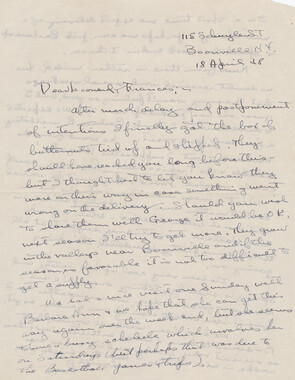 115 Schuyler St
Boonville N.Y.
18 April 48
Dear Leonard & Frances; -
After much delay and postponement
of intentions I finally got the box of
butternuts tied up and shipped. They
should have reached you long before this -
but I thought best to let you know they
were on their way in case something went
wrong on the delivery. Should you wish
to share them with George it would be O.K.
next season I'll try to get more. They grow
in the valleys near Boonville and if the
season is favorable it is not too difficult to
get a supply.
We had a nice visit one Sunday with
Barbara Ann & we hope that she can get this
way again over the week end, but she seems
to have a busy schedule which involves her
on Saturdays (but perhaps that was due to
the Basketball games & trips)